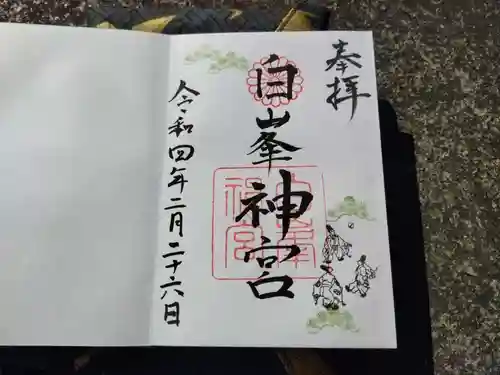 奉拝
白峯神宮
令和四年二月二十六日
白峯神宮